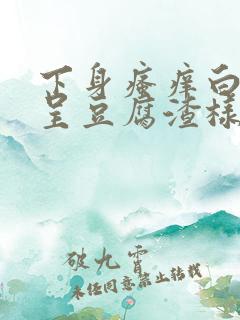 下身瘙痒白
呈豆腐渣样
破九霄
未经同意禁止转载